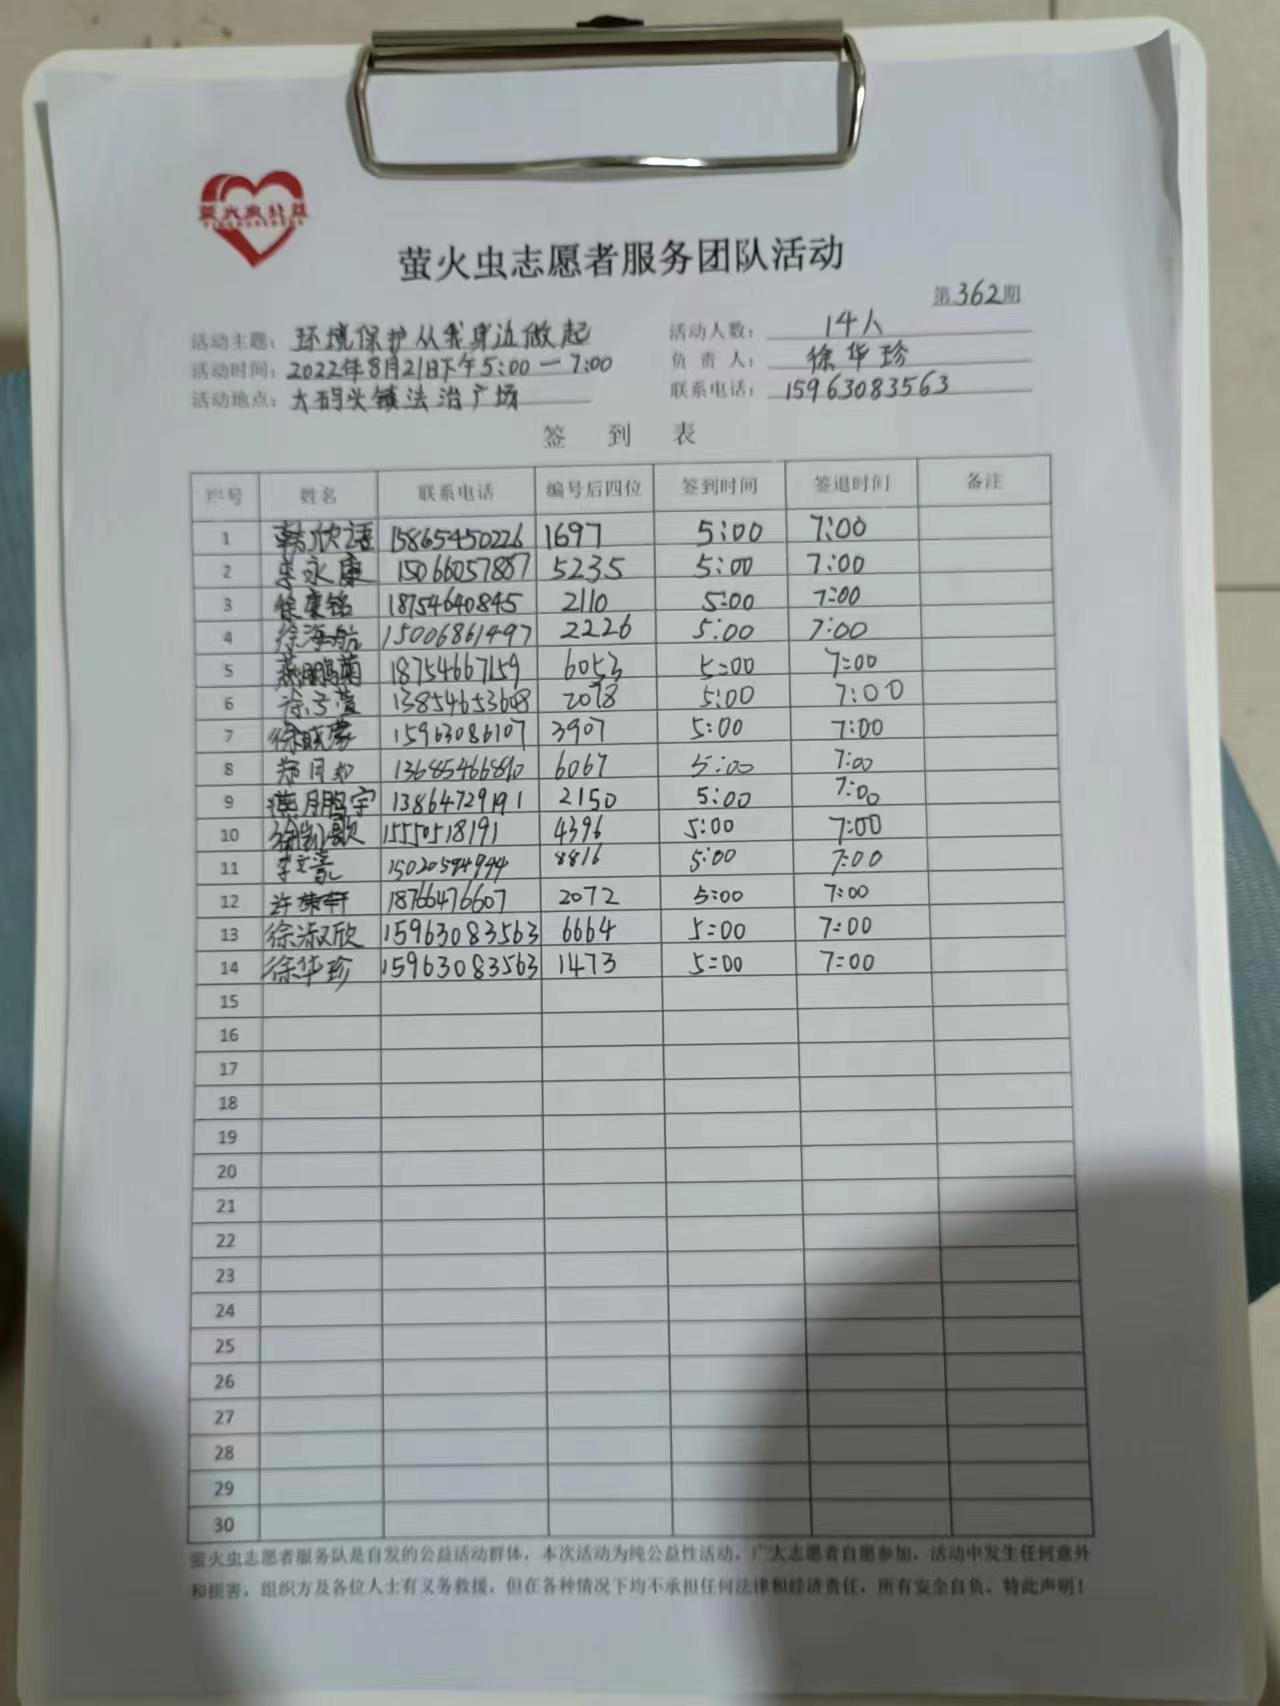 萤火虫公益
萤火虫志愿者服务团队活动
第362期
活动主题：环境保护从我身边做起 活动人数：14人
活动时间：2022年8月21日下午5:00—7:00 负责人：徐华珍
活动地点：大码头镇法治广场 联系电话：15963083563
签到表
序号 姓名 联系电话 编号后四位 签到时间 签退时间 备注
1 韩欣语 15865450226 1697 5:00 7:00
2 李永康 15066057887 5235 5:00 7:00
3 徐康铭 18754640845 2110 5:00 7:00
4 徐海航 15006861497 2226 5:00 7:00
5 燕鹏菊 18754667159 6053 5:00 7:00
6 徐子萱 13854653608 2098 5:00 7:00
7 徐晓蒙 15963086107 3907 5:00 7:00
8 郑月 13685466890 6067 5:00 7:00
9 燕鹏宇 13864729191 2150 5:00 7:00
10 徐凯歌 15550518191 4396 5:00 7:00
11 李 15020594994 8816 5:00 7:00
12 许 轩 18766476607 2072 5:00 7:00
13 徐淑欣 15963083563 6664 5:00 7:00
14 徐华珍 15963083563 1473 5:00 7:00
15
16
17
18
19
20
21
22
23
24
25
26
27
28
29
30
萤火虫志愿者服务队是自发的公益活动群体，本次活动为纯公益性活动，广大志愿者自愿参加，活动中发生任何意外
和损害，组织方及各位人士有义务救援，但在各种情况下均不承担任何法律和经济责任，所有安全自负，特此声明！